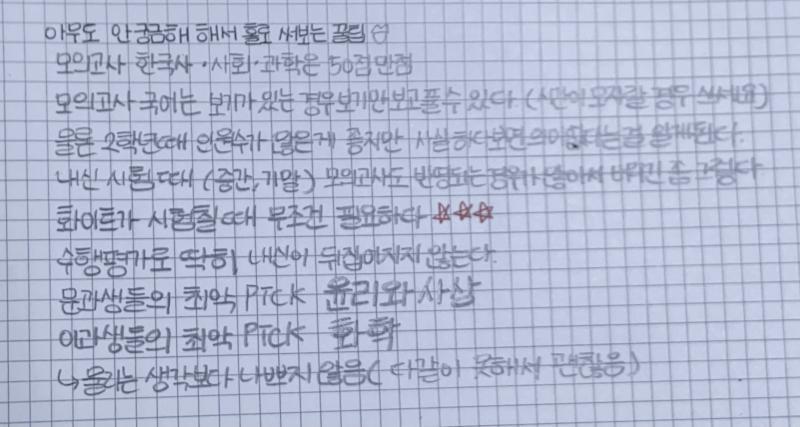 아무도 안 궁금해 해서 홀로 써보는 꿀팁
모의고사 한국사·사회·과학은 50점 만점
모의고사 국어는 보기가 있는 경우 보기만 보고 풀 수 있다 (시간이 모자랄 경우 쓰세요)
물론 2학년때 인원수가 많은게 좋지만 사실 하다보면 의미없다는걸 알게된다.
내신 시험 때 (중간, 기말) 모의고사도 반영되는 경우가 많아서 버리긴 좀 그렇다
화이트가 시험칠 때 무조건 필요하다 ☆☆☆
수행평가로 딱히 내신이 뒤집어지지 않는다.
문과생들의 최악 PICK 윤리와 사상
이과생들의 최악 PICK 화학
↳ 물리는 생각보다 나쁘지 않음 (다같이 못해서 괜찮음)